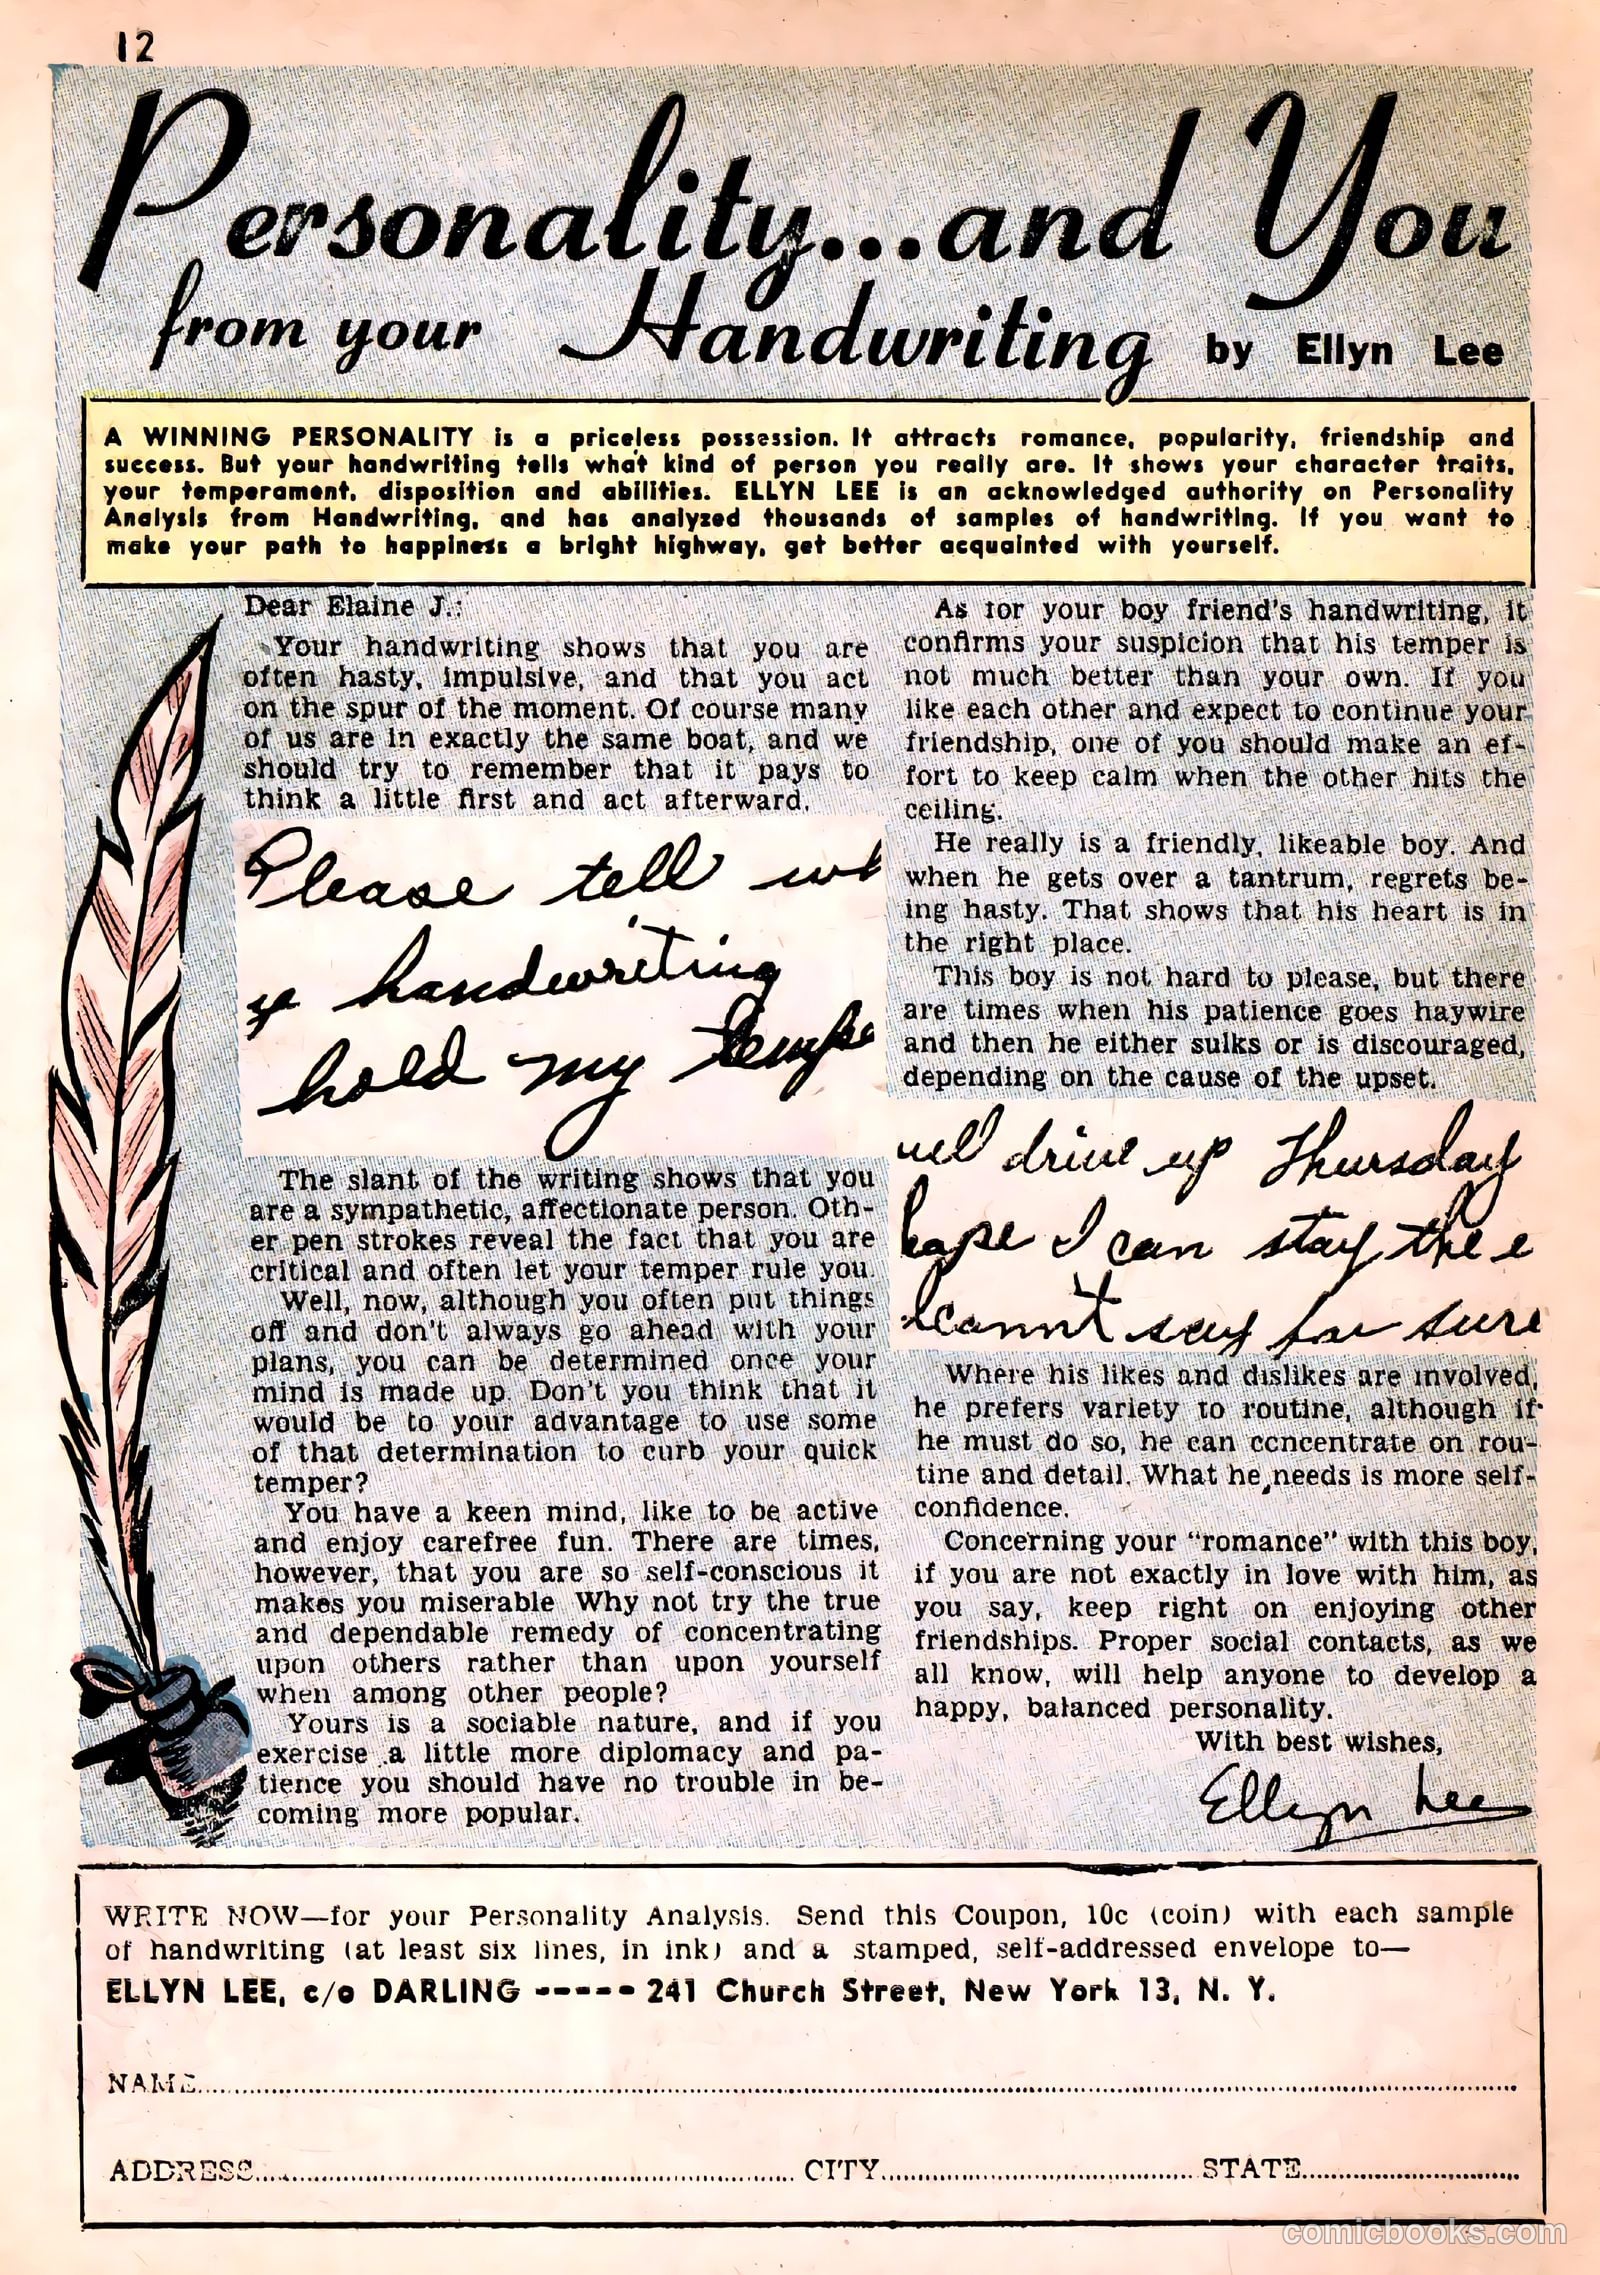 12
Personality...and You
from your Handwriting by Ellyn Lee
A WINNING PERSONALITY is a priceless possession. It attracts romance, popularity, friendship and
success. But your handwriting tells what kind of person you really are. It shows your character traits,
your temperament, disposition and abilities. ELLYN LEE is an acknowledged authority on Personality
Analysis from Handwriting, and has analyzed thousands of samples of handwriting. If you want to
make your path to happiness a bright highway, get better acquainted with yourself.
Dear Elaine J.:
Your handwriting shows that you are
often hasty, impulsive, and that you act
on the spur of the moment. Of course many
of us are in exactly the same boat, and we
should try to remember that it pays to
think a little first and act afterward.
Please tell wh
y handwriting
hold my tempe
The slant of the writing shows that you
are a sympathetic, affectionate person. Oth-
er pen strokes reveal the fact that you are
critical and often let your temper rule you.
Well, now, although you often put things
off and don't always go ahead with your
plans, you can be determined once your
mind is made up. Don't you think that it
would be to your advantage to use some
of that determination to curb your quick
temper?
You have a keen mind, like to be active
and enjoy carefree fun. There are times,
however, that you are so self-conscious it
makes you miserable Why not try the true
and dependable remedy of concentrating
upon others rather than upon yourself
when among other people?
Yours is a sociable nature, and if you
exercise a little more diplomacy and pa-
tience you should have no trouble in be-
coming more popular.
As for your boy friend's handwriting, it
confirms your suspicion that his temper is
not much better than your own. If you
like each other and expect to continue your
friendship, one of you should make an ef-
fort to keep calm when the other hits the
ceiling.
He really is a friendly, likeable boy. And
when he gets over a tantrum, regrets be-
ing hasty. That shows that his heart is in
the right place.
This boy is not hard to please, but there
are times when his patience goes haywire
and then he either sulks or is discouraged,
depending on the cause of the upset.
will drive up Thursday
hope I can stay the e
cannt say for sure
Where his likes and dislikes are involved,
he prefers variety to routine, although if
he must do so, he can concentrate on rou-
tine and detail. What he needs is more self-
confidence.
Concerning your "romance" with this boy,
if you are not exactly in love with him, as
you say, keep right on enjoying other
friendships. Proper social contacts, as we
all know, will help anyone to develop a
happy, balanced personality.
With best wishes,
Ellyn Lee
WRITE NOW—for your Personality Analysis. Send this Coupon, 10c (coin) with each sample
of handwriting (at least six lines, in ink) and a stamped, self-addressed envelope to—
ELLYN LEE, c/o DARLING ----- 241 Church Street, New York 13, N. Y.
NAME
ADDRESS CITY STATE
comicbooks.com